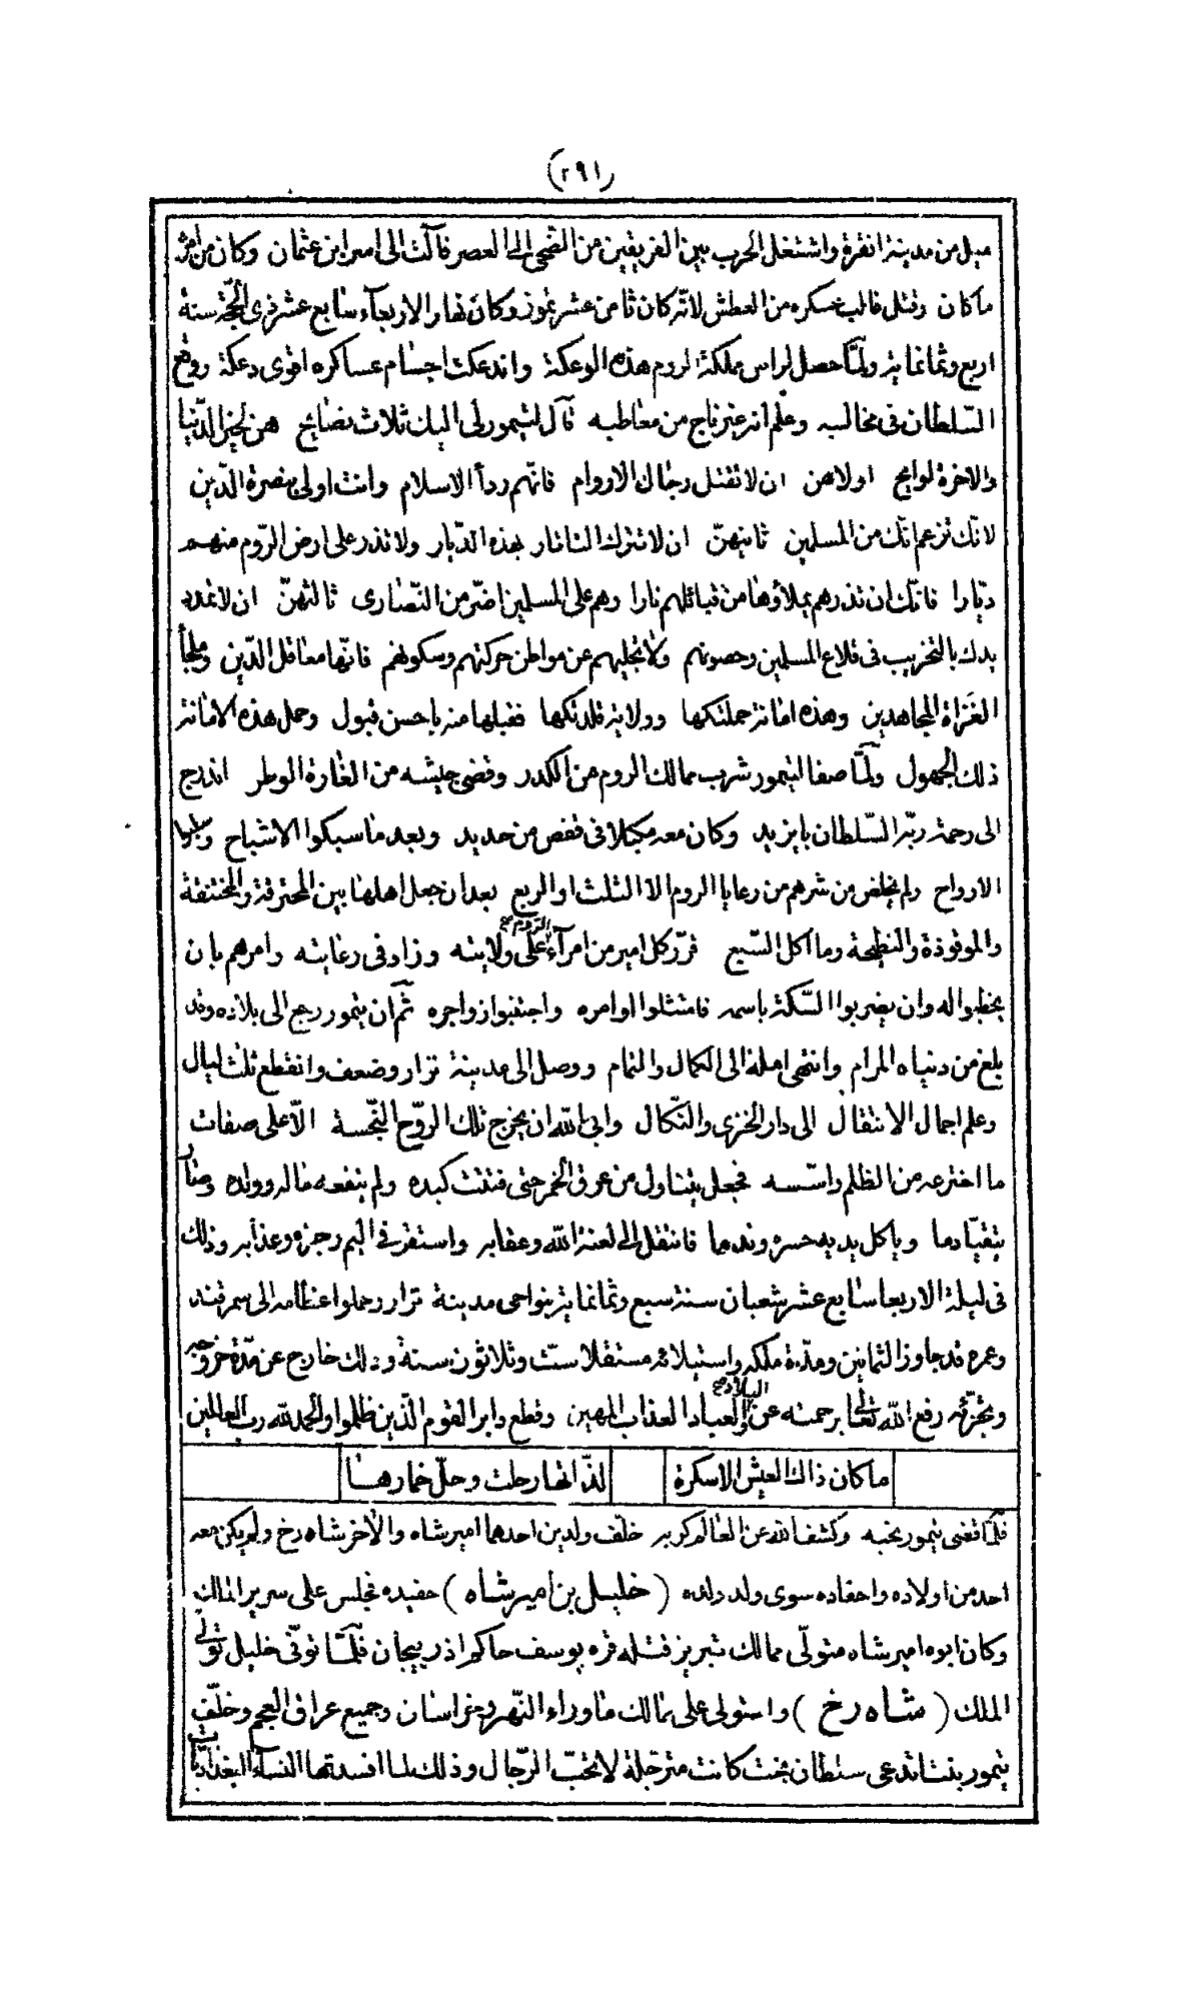 (٢٩١)
ميل من مدينة انقرة واشتغل الحرب بين الفريقين من الضحى الى العصر فآلت الى اسر ابن عثمان وكان من امره
ما كان وقتل غالب عسكره من العطش لانه كان ثامن عشر تموز وكان نهار الاربعاء سابع عشر ذى الحجة سنة
اربع وثمانمايه ولمّا حصل لراس مملكة الروم هذه الوعكة واندعكت اجسام عساكره اقوى دعكة ووقع
السّلطان فى مخالبه وعلم انه غير ناج من معاطبه قال لتيمور لى اليك ثلاث نصايح هن لخير الدّنيا
والاخرة لوايح اولاهن ان لا تقتل رجال الاروام فانهم ردأ الاسلام وانت اولى بنصرة الدّين
لانّك تزعم انّك من المسلمين ثانيهنّ ان لا تترك التاتار بهذه الدّيار ولا تذر على ارض الرّوم منهم
ديّارا فانّك ان تذرهم يملاؤها من قبائلهم نارا وهم على المسلمين اضرّ من النّصارى ثالثهنّ ان لا تمدد
يدك بالتخريب فى قلاع المسلمين وحصونهم ولا تجليهم عن مواطن حركتهم وسكونهم فانّها معاقل الدّين وملجأ
الغزاة المجاهدين وهذه امانة حملتكها وولاية قلدتكها فقبلها منه باحسن قبول وحمل هذه الامانة
ذلك الجهول ولمّا صفا لتيمور شرب ممالك الروم من الكدر وقضى جيشه من الغارة الوطر اندرج
الى رحمة ربّه السّلطان بايزيد وكان معه مكبلا فى قفص من حديد وبعد ما سبكوا الاشباح وسلبوا
الارواح ولم يخلص من شرهم من رعايا الروم الا الثلث او الربع بعد ان جعل اهلها بين المحترقة والمختنقة
والموقوذة والنطيحة وما اكل السّبع قرّر كل امير من امرآء الرّوم على ولايته وزاد فى رعايته وامرهم بان
يخطبوا له وان يضربوا السّكة باسمه فامتثلوا اوامره واجتنبوا زواجره ثمّ ان تيمور رجع الى بلاده وقد
بلغ من دنياه المرام وانتهى امله الى الكمال والتمام ووصل الى مدينة تزار وضعف وانقطع ثلث ليال
وعلم اجمال الانتقال الى دار الخزى والنّكال وابى الله ان يخرج تلك الروّح النّجسة الاّ على صفات
ما اخترعه من الظلم واسّسه فجعل يتناول من عرق الخمر حتى فتتت كبده ولم ينفعه ماله وولده وصار
يتقيّا دما وياكل يديه حسرة وندما فانتقل الى لعنة الله وعقابه واستقر فى اليم رجزه وعذابه وذلك
فى ليلة الاربعا سابع عشر شعبان سنة سبع وثمانماية بنواحى مدينة تزار وحملوا عظامه الى سمرقند
وعمره قد جاوز الثمانين ومدّة ملكه واستيلائه مستقلا ست وثلاثون سنة وذلك خارج عن مدّة خروجه
وتجرّئه رفع الله تعالى برحمته عن البلاد والعباد العذاب المهين وقطع دابر القوم الذّين ظلموا والحمد لله رب العالمين
ما كان ذاك العيش الا سكرة لذّاتها رحلت وحلّ خمارها
فلمّا قضى تيمور نحبه وكشف الله عن العالم كربه خلّف ولدين احدهما اميرشاه والاخر شاه رخ ولم يكن معه
احد من اولاده واحفاده سوى ولد ولده (خليل بن اميرشاه) حفيده فجلس على سرير الملك
وكان ابوه اميرشاه متولّى ممالك تبريز قتله قره يوسف حاكم اذربيجان فلمّا توفّى خليل تولّى
الملك (شاه رخ) واستولى على ممالك ماوراء النّهر وخراسان وجميع عراق العجم وخلّف
تيمور بنتا تدعى سلطان بخت كانت مترجّلة لا تحبّ الرّجال وذلك لما افسدتها النساء البغداديّات